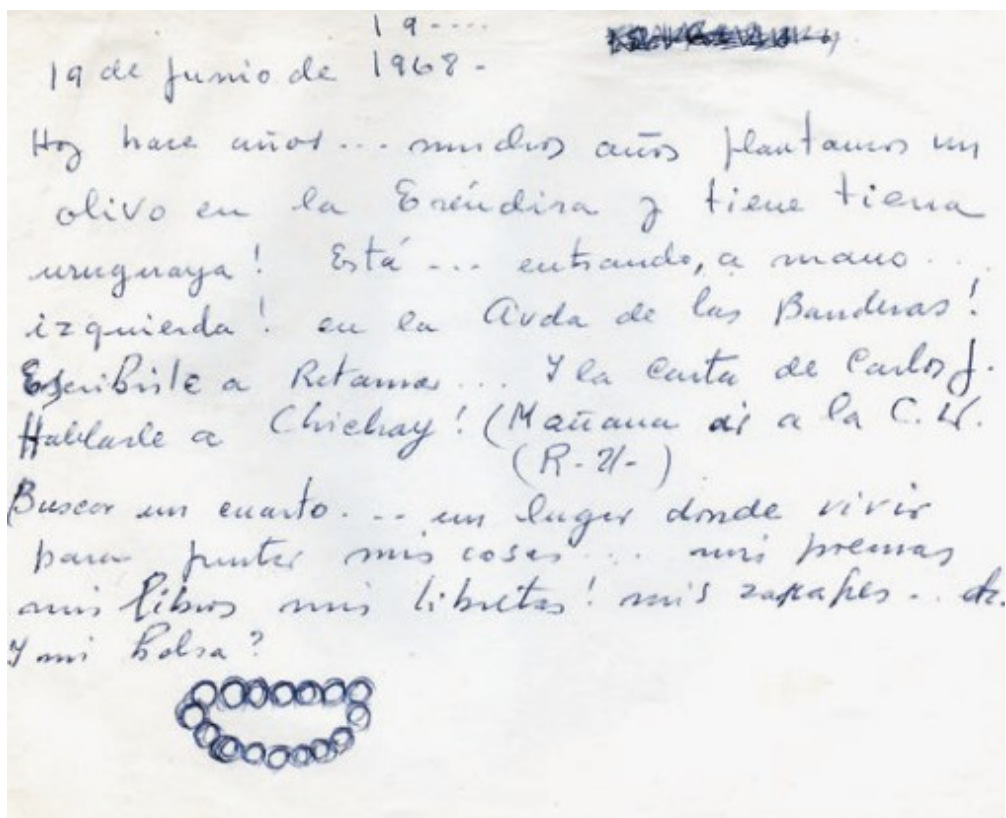 19....
19 de Junio de 1968-
Hoy hace años... muchos años plantamos un
olivo en la Eréndira y tiene tierra
uruguaya! Está --- entrando, a mano...
izquierda! en la Avda de las Banderas!
Escribirle a Retamar... Y la carta de Carlos J.
Hablarle a Chichay! (Mañana a la C. U.
(R-21-)
Buscar un cuarto... un lugar donde vivir
para juntar mis cosas... mis
mis libros mis libretas! mis zarapes.. etc.
Y mi bolsa?